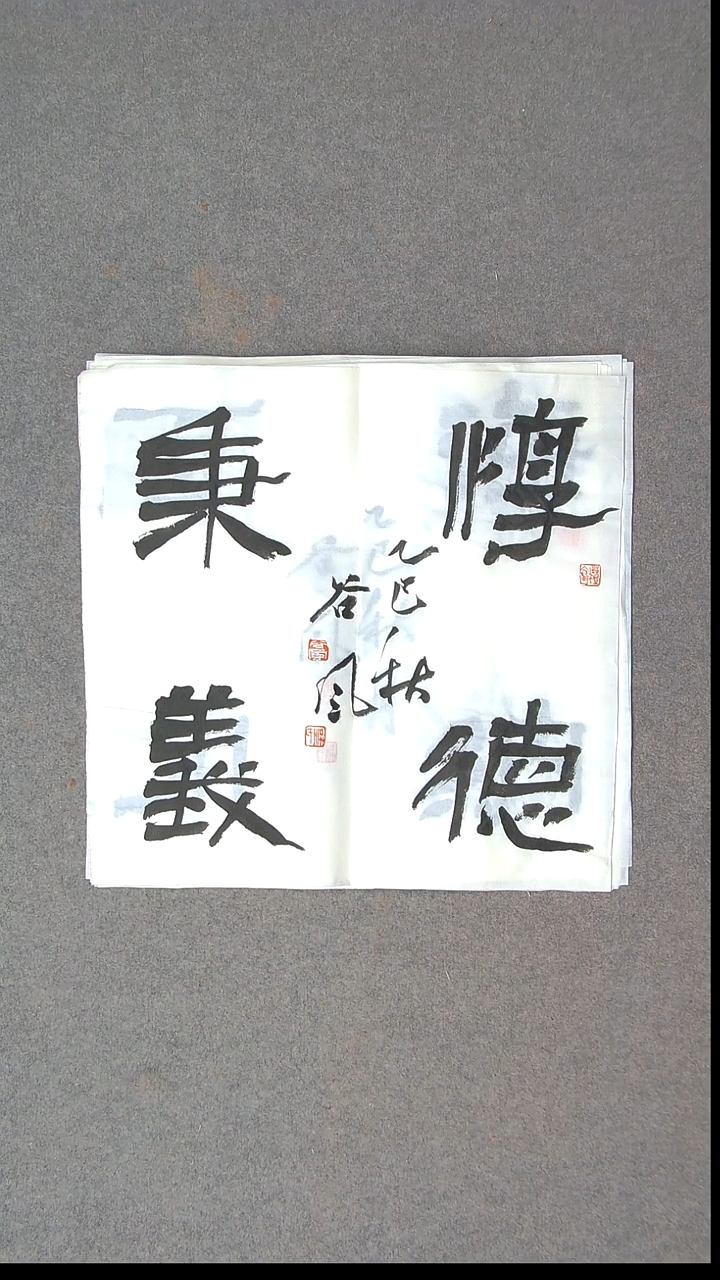 惇德
秉義
乙巳秋
谷風